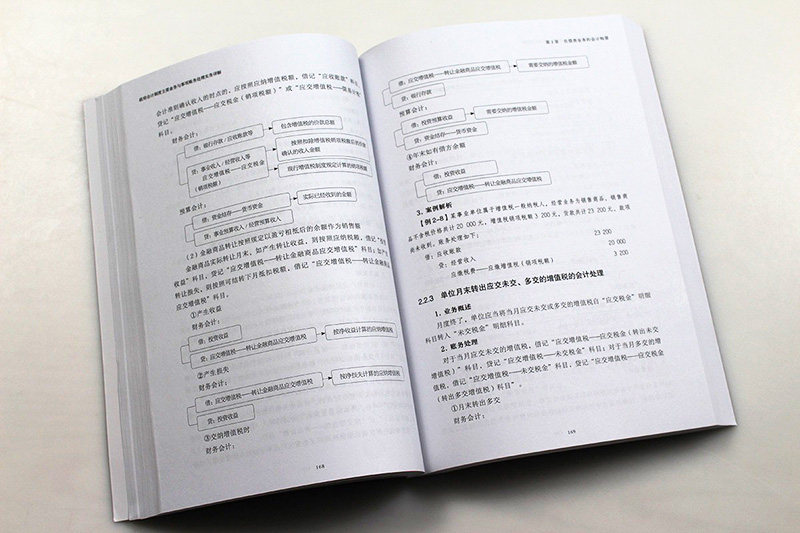 政府会计制度主要业务与事项账务处理实务详解
会计准则确认收入的时点的，应按照应纳增值税额，借记“应收账款”科目，
贷记“应交增值税——应交税金（销项税额）”或“应交增值税——简易计税”
科目。
财务会计：
借：银行存款/应收账款等
包含增值税的价款总额
贷：事业收入/经营收入等
应交增值税——应交税金
（销项税额）
按照扣除增值税销项税额后的价款
确认的收入金额
按行增值税制度规定计算的销项税额
预算会计：
借：资金结存——货币资金
实际已经收到的金额
贷：事业预算收入/经营预算收入
（2）金融商品转让按照规定以盈亏相抵后的余额作为销售额
金融商品实际转让月末，如产生转让收益，则按照应纳税额，借记“投资
收益”科目，贷记“应交增值税——转让金融商品应交增值税”科目；如产生
转让损失，则按照可结转下月抵扣税额，借记“应交增值税——转让金融商品
应交增值税”科目。
①产生收益
财务会计：
借：投资收益
贷：应交增值税——转让金融商品应交增值税
按净收益计算的应纳增值税
②产生损失
财务会计：
借：应交增值税——转让金融商品应交增值税
贷：投资收益
按净损失计算的应纳增值税
③交纳增值税时
财务会计：
168
第2章 负债类业务的会计核算
借：应交增值税——转让金融商品应交增值税
需要交纳的增值税金额
贷：银行存款
预算会计：
借：投资预算收益
需要交纳的增值税金额
贷：资金结存——货币资金
④年末如有借方余额
财务会计：
借：投资收益
贷：应交增值税——转让金融商品应交增值税
3. 案例解析
【例2-8】某事业单位属于增值税一般纳税人，经营业务为销售商品，销售商
品不含税价格共计20 000元，增值税销项税额3 200元，货款共计23 200元，款项
尚未收到。账务处理如下：
借：应收账款 23 200
贷：经营收入 20 000
应缴税费——应缴增值税（销项税额） 3 200
2.2.3 单位月末转出应交未交、多交的增值税的会计处理
1. 业务概述
月度终了，单位应当将当月应交未交或多交的增值税自“应交税金”明细
科目转入“未交税金”明细科目。
2. 账务处理
对于当月应交未交的增值税，借记“应交增值税——应交税金（转出未交
增值税）”科目，贷记“应交增值税——未交税金”科目；对于当月多交的增
值税，借记“应交增值税——未交税金”科目，贷记“应交增值税——应交税金
（转出多交增值税）科目”。
①月末转出多交
财务会计：
169